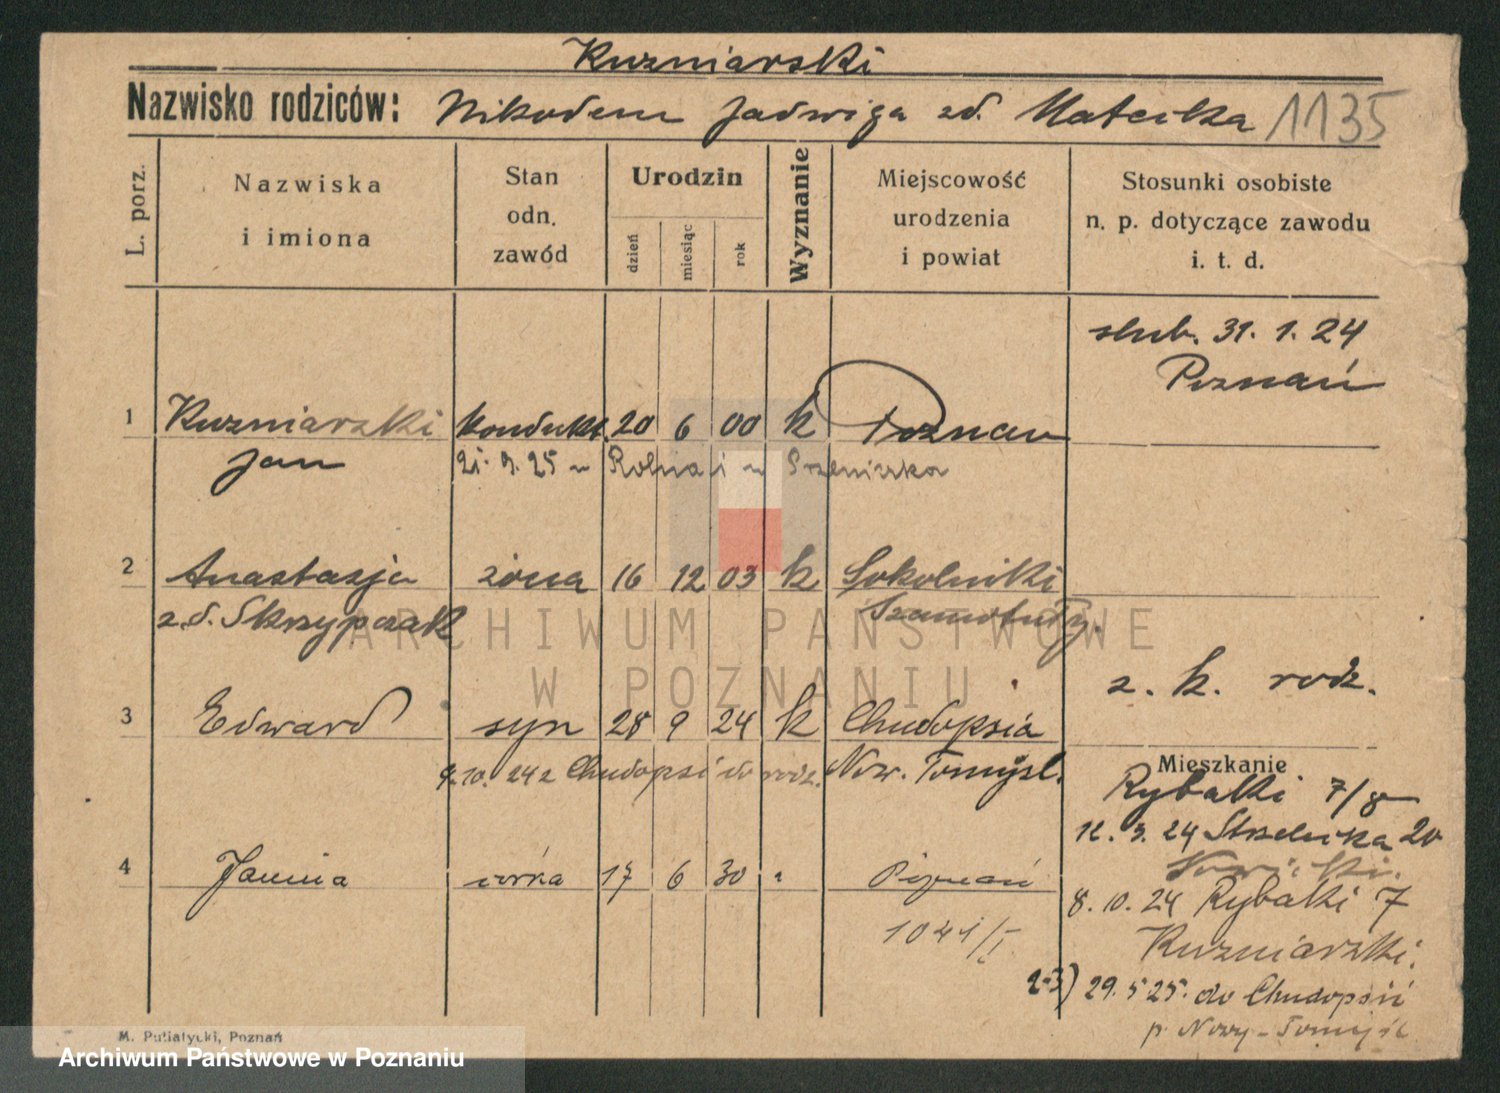 Kuzniarski
Nazwisko rodziców: Nikodem Jadwiga zd. Matecka 1135
L. porz.
Nazwiska
i imiona
Stan
odn.
zawód
Urodzin
dzień
miesiąc
rok
Wyznanie
Miejscowość
urodzenia
i powiat
Stosunki osobiste
n. p. dotyczące zawodu
i. t. d.
ślub. 31. 1. 24
Poznań
1 Kuzniarski kondukt. 20 6 00 k Poznan
Jan 21. 9. 25 w Rolna i u
2 Anastazja żona 16 12 03 k Sokolniki
z.d. Skrzypczak Szamotuły.
z. k. rodz.
3 Edward syn 28 9 24 k Chudopsia
9.10. 24 z Chudopsi do rodz. Now. Tomyśl.
Mieszkanie
Rybaki 7/8
12. 3. 24 Strzelecka 20
Nowicki.
4 Janina córka 17 6 30 " Poznań
8. 10. 24 Rybaki 7
1041/I.
Kuzniarski.
2-3) 29. 5 25. do Chudopsic
p. Nowy-Tomyśl
M. Putiatycki, Poznań
ARCHIWUM PAŃSTWOWE
W POZNANIU
Archiwum Państwowe w Poznaniu